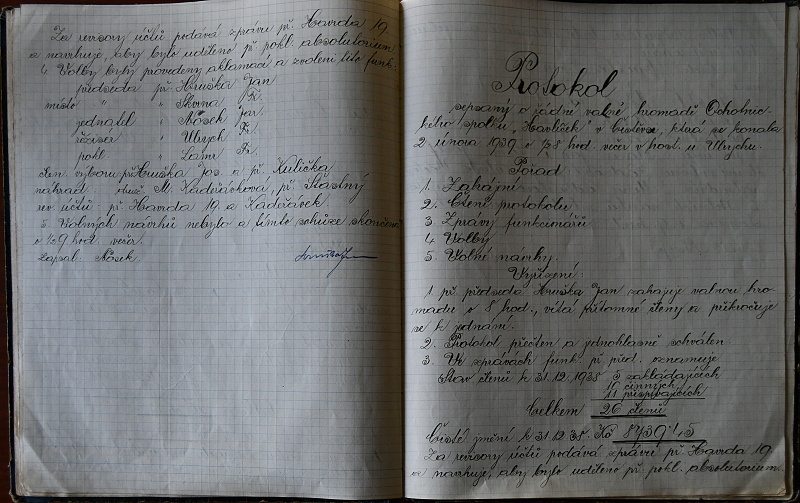 Za revisory účtů podává zprávu př. Havrda 19.
a navrhuje, aby bylo uděleno př. pokl. absolutorium.
4. Volby byly provedeny aklamací a zvoleni tito funk.:
předseda př. Hruška Jan
místo " " Skvrna Fr.
jednatel " Nosek Jar.
režisér " Ulrych Fr.
pokl. " Lamr Fr.
člen. výboru př. Hruška Jos. a př. Kulička
náhrad. M. Kadeřávková, př. Šťastný
rev. účtů př. Havrda 19. a Kadeřávek.
5. Volných návrhů nebylo a tímto schůze skončena
v ½9 hod. večer.
Zapsal: Nosek
Protokol
sepsaný o řádné valné hromadě Ochotnic-
kého spolku „Havlíček" v která se konala
2. února 1939 v 7/8 hod. večer v host. u Ulrychů.
Pořad
1. Zahájní
2. Čtení protokolu
3. Zprávy funkcionářů
4. Volby
5. Volné návrhy.
Vyřízení:
1. př. předseda Hruška Jan zahajuje valnou hro-
madu v 8 hod., vítá přítomné členy a přikročuje
se k jednání.
2. Protokol přečten a jednohlasně schválen.
3. Ve zprávách funk. př. před. oznamuje
Stav členů k 31.12.1938 5 zakládajících
10 činných
11 přispívajících
Celkem 26 členů
Čisté jmění k 31.12.38. Kč 8739.45
Za revisory účtů podává zprávu př. Havrda 19.
se navrhuje, aby bylo uděleno př. pokl. absolutorium.